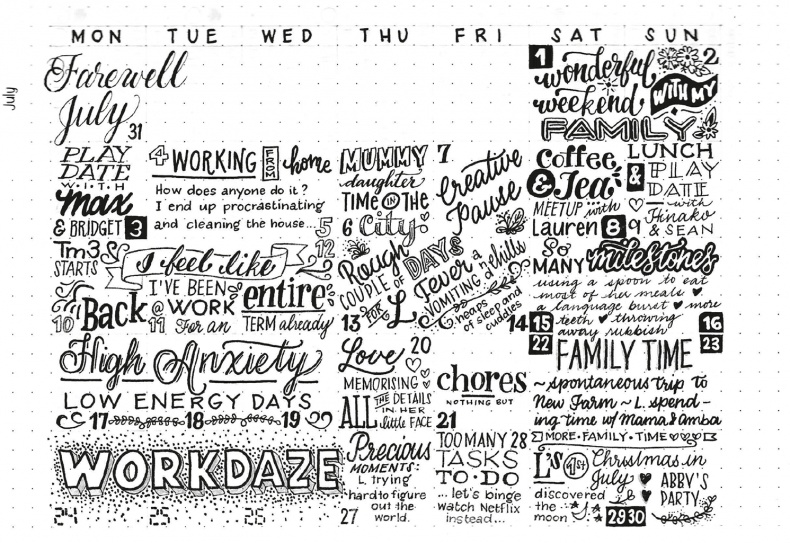 MON TUE WED THU FRI SAT SUN
July
Farewell
July 31
1
wonderful
weekend
2
WITH MY
FAMILY
PLAY
DATE
WITH
max
& BRIDGET 3
4 WORKING FROM home
How does anyone do it?
I end up procrastinating
and cleaning the house... 5
MUMMY
daughter
TIME IN THE
6 City
7
Creative
Pause
Coffee
& Tea
MEETUP with
Lauren 8
LUNCH
& PLAY
DATE
with
Hinako
9 & SEAN
Tm3
STARTS
10 Back
@
11
12
I feel like
I'VE BEEN
WORK
For an
entire
TERM already
Rough
COUPLE OF DAYS
FOR L
13
Fever &
VOMITING & chills
heaps
of sleep and
cuddles
14
So
MANY milestones
using a spoon to eat
most of her meals
a language burst more
teeth throwing
away rubbish
15
16
High Anxiety
LOW ENERGY DAYS
17 18 19
Love 20
MEMORISING
ALL THE DETAILS
IN HER
little FACE
chores
NOTHING BUT
21
22
FAMILY TIME
23
~spontaneous trip to
New Farm ~ L. spend-
ing time w/ Mama & Amba
MORE • FAMILY • TIME
WORKDAZE
24 25 26
Precious
MOMENTS:
L. trying
hard to figure
out the
world.
27
TOO MANY 28
TASKS
TO•DO
... let's binge
watch Netflix
instead...
L's 1st
discovered
the
moon
Christmas in
July
29 30
ABBY'S
PARTY